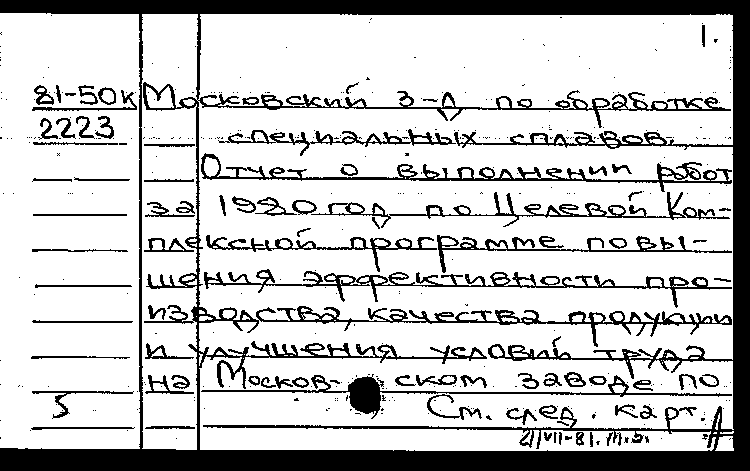 1.
81-50к Московский з-д по обработке
2223 специальных сплавов.
Отчет о выполнении работ
за 1980 год по Целевой Ком-
плексной программе повы-
шения эффективности про-
изводства, качества продукции
и улучшения условий труда
на Москов- ском заводе по
5 См. след. карт.
21/VII-81.